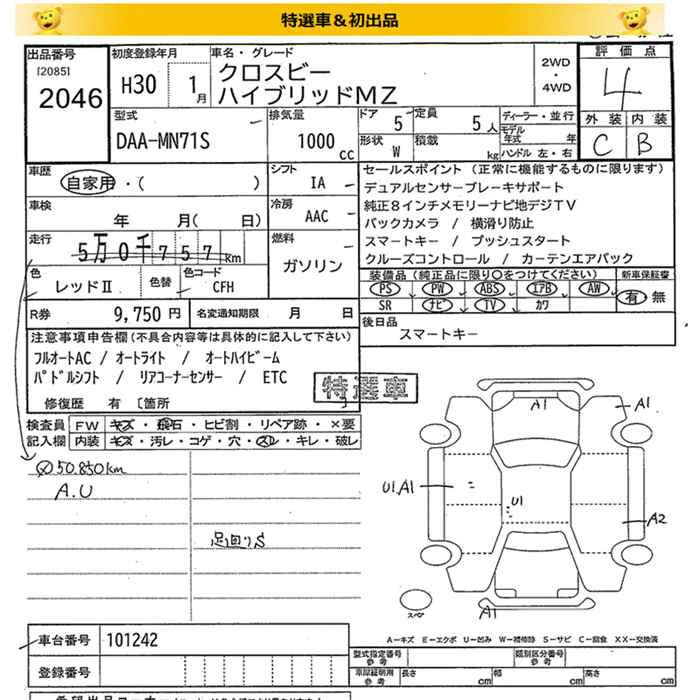 特選車＆初出品
出品番号 初度登録年月 車名・グレード 評価点
[2085]
2046 H30 1月 クロスビー 2WD・4WD 4
ハイブリッドMZ
型式 排気量 ドア 定員 ディーラー・並行 外装 内装
DAA-MN71S 1000cc 5 5人 モデル年式 年 C B
形状 W 積載 kg ハンドル 左・右
車歴 シフト セールスポイント（正常に機能するものに限ります）
自家用・( ) IA デュアルセンサーブレーキサポート
車検 冷房 純正8インチメモリーナビ地デジTV
年 月(日) AAC バックカメラ / 横滑り防止
走行 燃料 スマートキー / プッシュスタート
5万0千757km ガソリン クルーズコントロール / カーテンエアバック
色 色替 色コード 装備品（純正品に限り○をつけてください） 新車保証書
レッドⅡ CFH PS PW ABS エアB AW 有 無
SR ナビ TV カワ
R券 9,750円 名変通知期限 月 日 後日品
スマートキー
注意事項申告欄（不具合内容等は具体的に記入して下さい）
フルオートAC / オートライト / オートハイビーム
パドルシフト / リアコーナーセンサー / ETC
特選車
修復歴 有 [箇所 ]
検査員 FW キズ・飛石・ヒビ割・リペア跡・×要
記入欄 内装 キズ・汚レ・コゲ・穴・スレ・キレ・破レ
50,850km
A.U
足回りS
A1
A1
U1.A1
U1
A2
スペア
A1
車台番号 101242
A－キズ E－エクボ U－凹み W－補修跡 S－サビ C－腐食 XX－交換済
型式指定番号 参考 類別区分番号 参考
登録番号 車庫証明用 参考 長さ cm 幅 cm 高さ cm